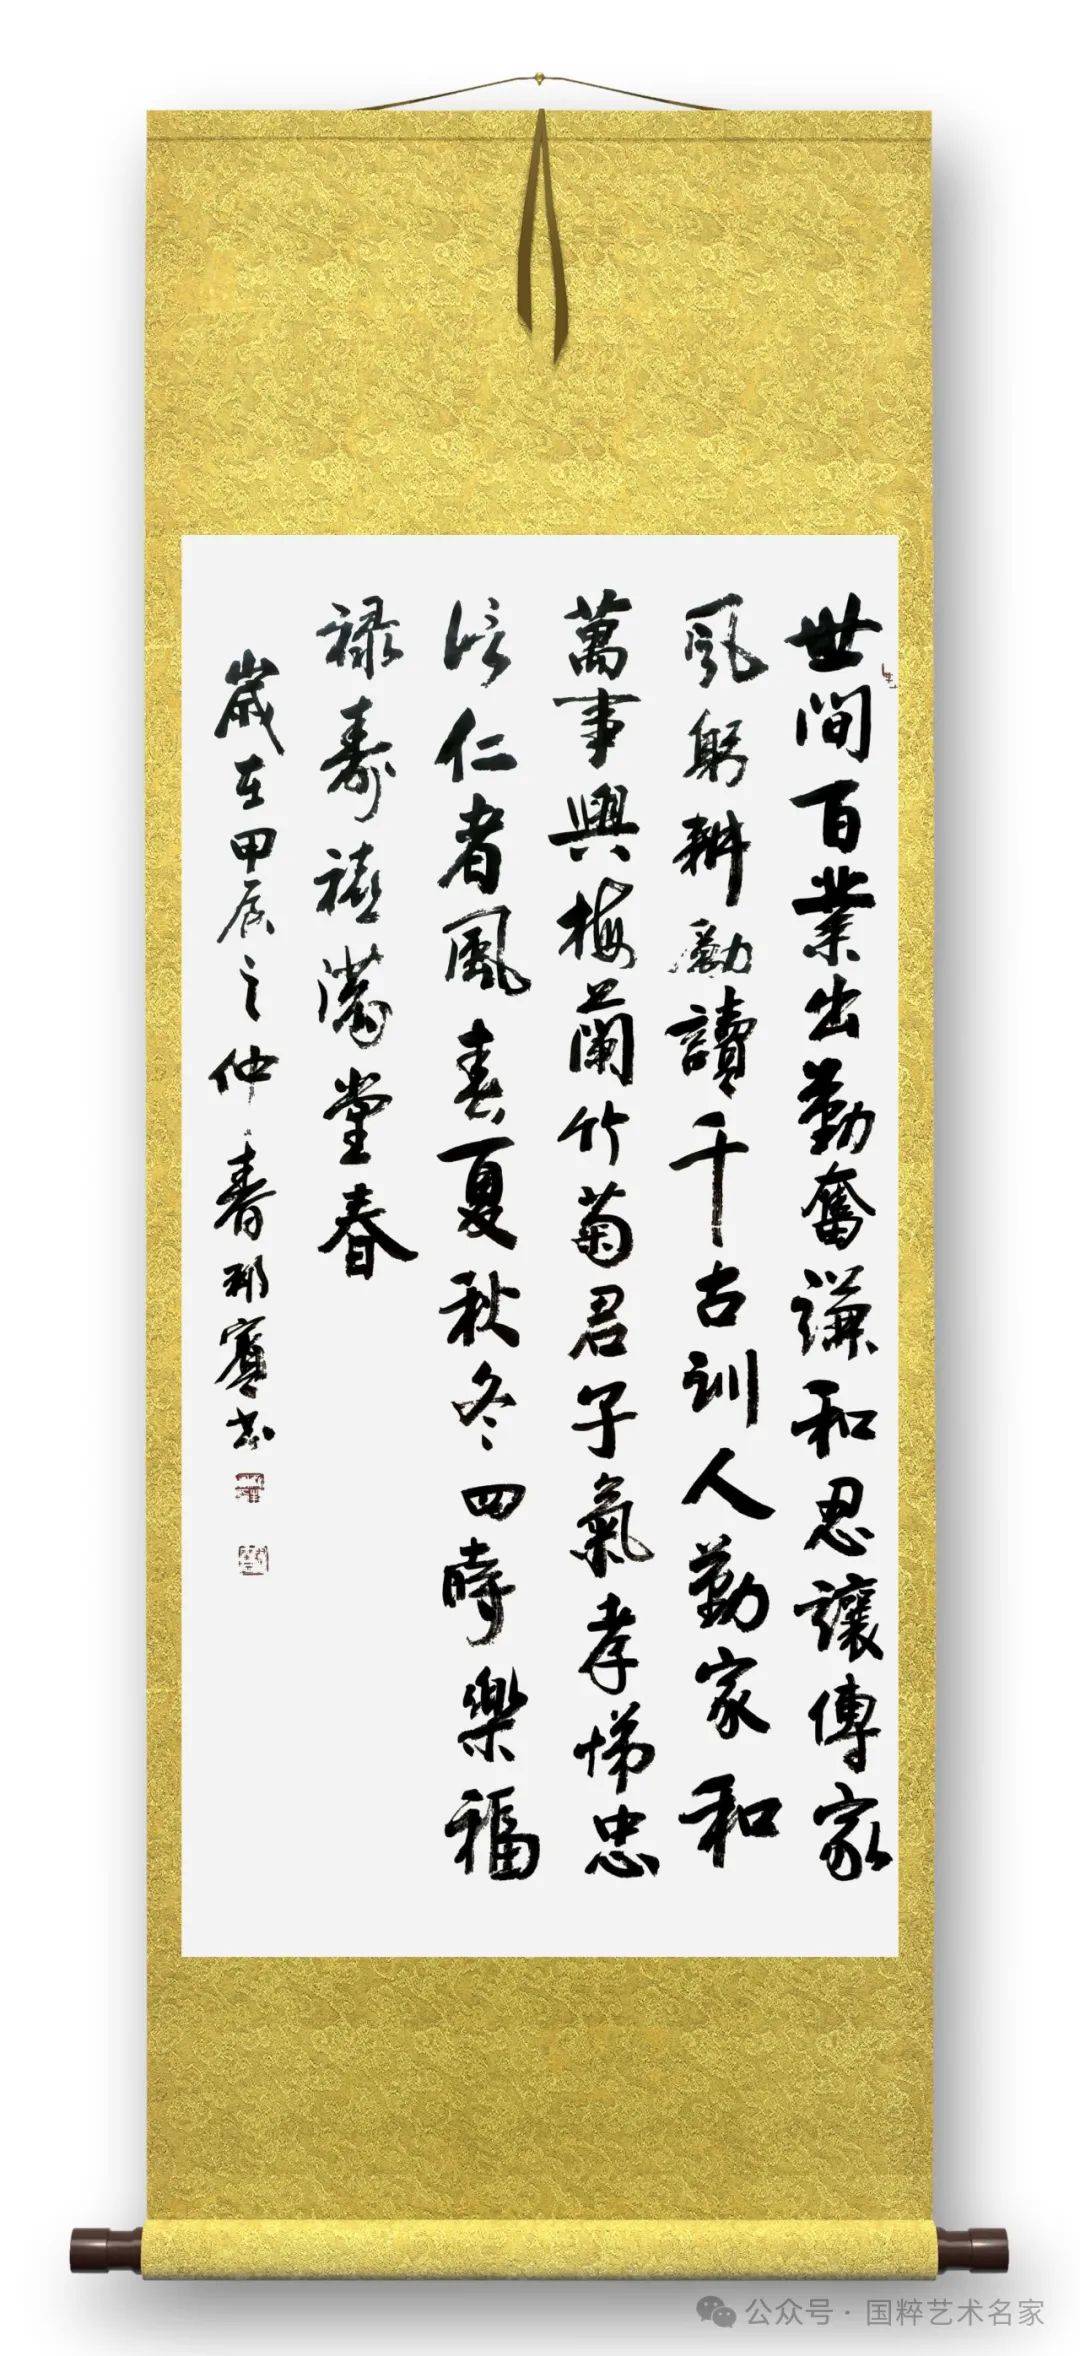 世間百業出勤奮謙和忍讓傳家
風躬耕勵讀千古訓人勤家和
萬事興梅蘭竹菊君子氣孝悌忠
信仁者風春夏秋冬四時樂福
祿壽禧滿堂春
歲在甲辰之仲春邢寶書
公众号·国粹艺术名家